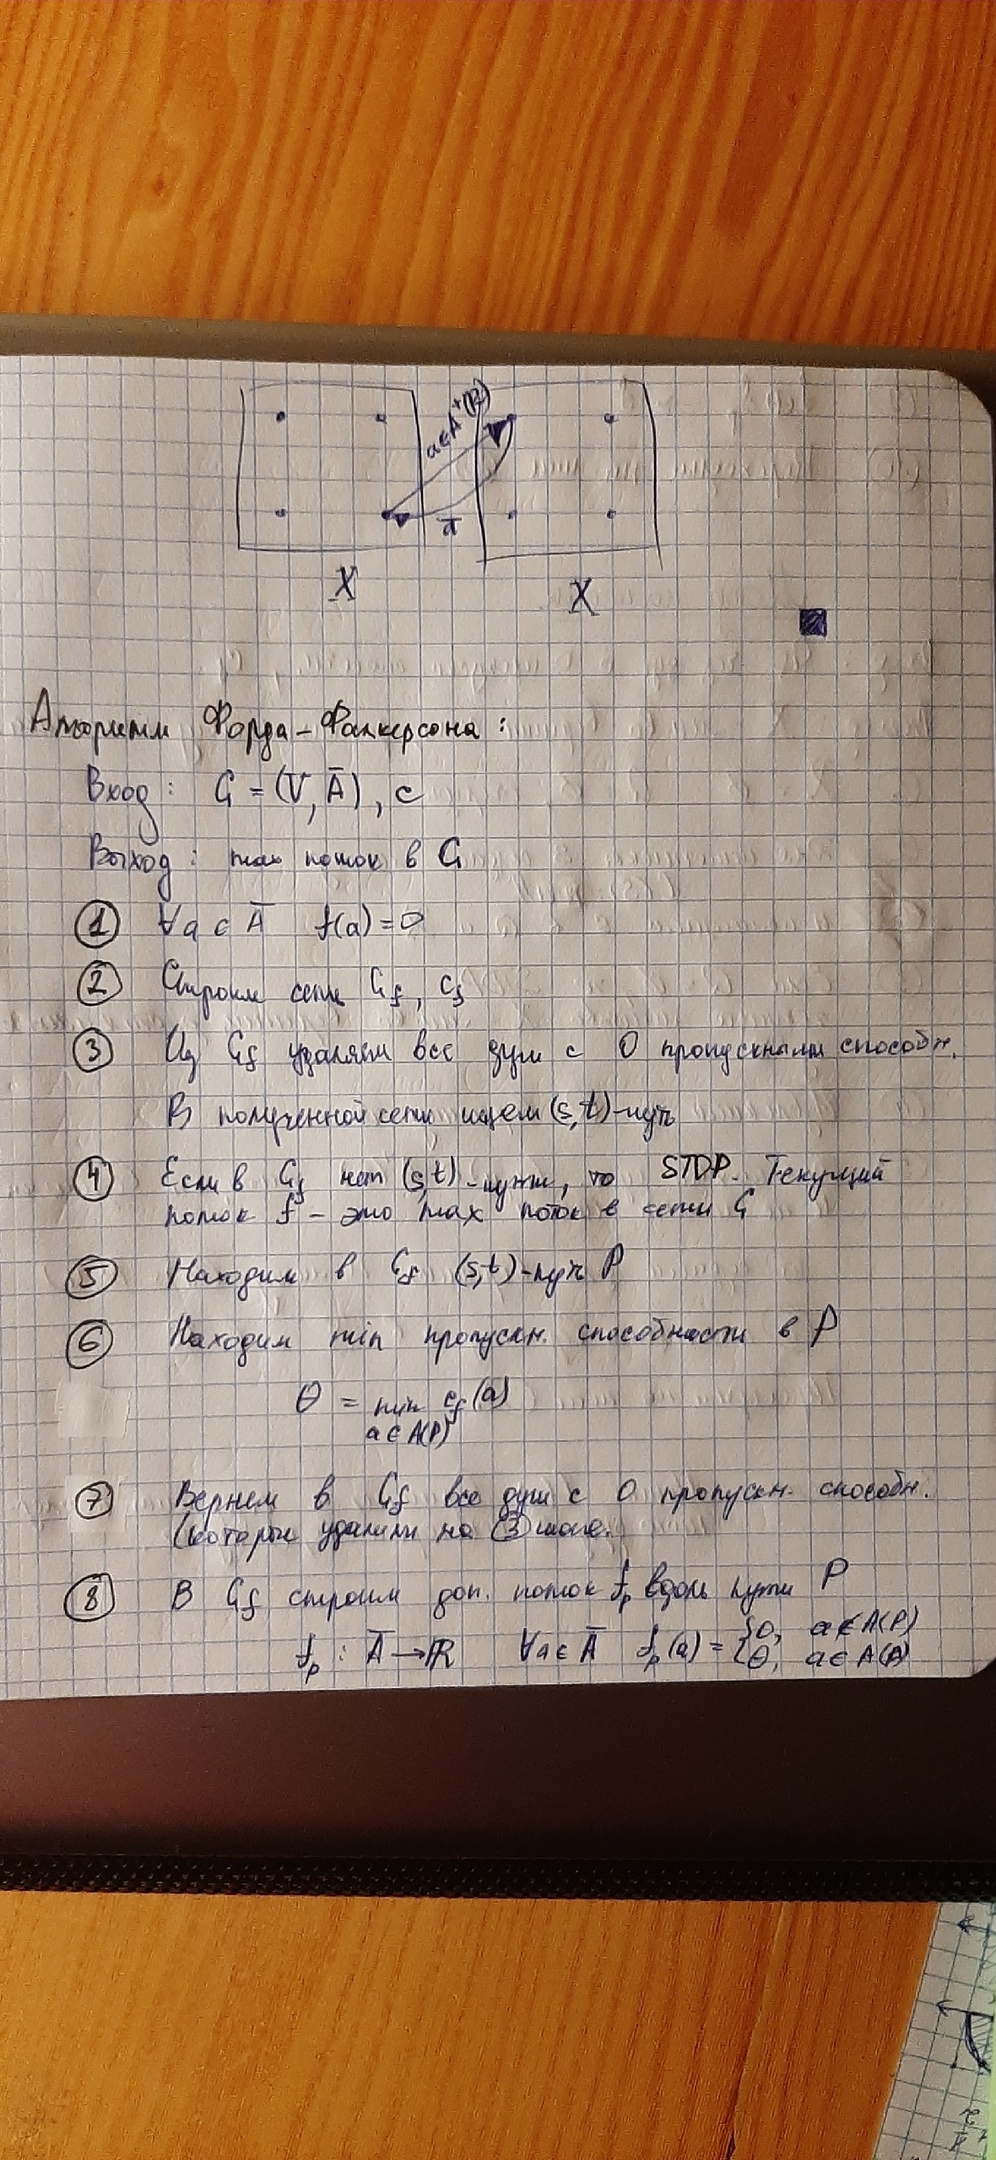 a ∈ A⁺(R)
a̅
X X
Алгоритм Форда-Фалкерсона:
Вход: G = (V, A̅), c
Выход: max поток в G
① ∀a ∈ A̅ f(a) = 0
② Строим сеть G_f, c_f
③ Из G_f удаляем все дуги с 0 пропускными способн.
В полученной сети ищем (s,t)-путь
④ Если в G_f нет (s,t)-пути, то STOP. Текущий
поток f – это max поток в сети G
⑤ Находим в G_f (s,t)-путь P
⑥ Находим min пропускн. способности в P
θ = min c_f(a)
a ∈ A(P)
⑦ Вернем в G_f все дуги с 0 пропускн. способн.
(которые удалили на ③ шаге.
⑧ В G_f строим доп. поток f_p вдоль пути P
f_p : A̅ → ℝ ∀a ∈ A̅ f_p(a) = { 0, a ∉ A(P)
θ, a ∈ A(P)